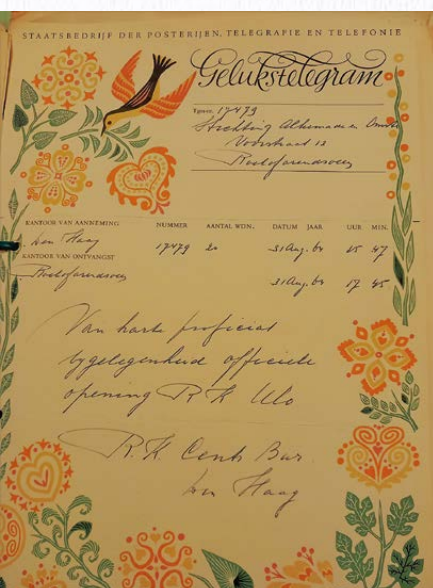 STAATSBEDRIJF DER POSTERIJEN, TELEGRAFIE EN TELEFONIE
Gelukstelegram
Tgram. 17479
Stichting Alkemade en Omstr
Voorstraat 12
Roelofarendsveen
KANTOOR VAN AANNEMING NUMMER AANTAL WDN. DATUM JAAR UUR MIN.
den Haag 17479 20 31 Aug. 60 15 47
KANTOOR VAN ONTVANGST
Roelofarendsveen 31 Aug. 60 17 45
Van harte proficiat
tygelegenheid officiele
opening R K Ulo
R.K. Centr Bur.
den Haag